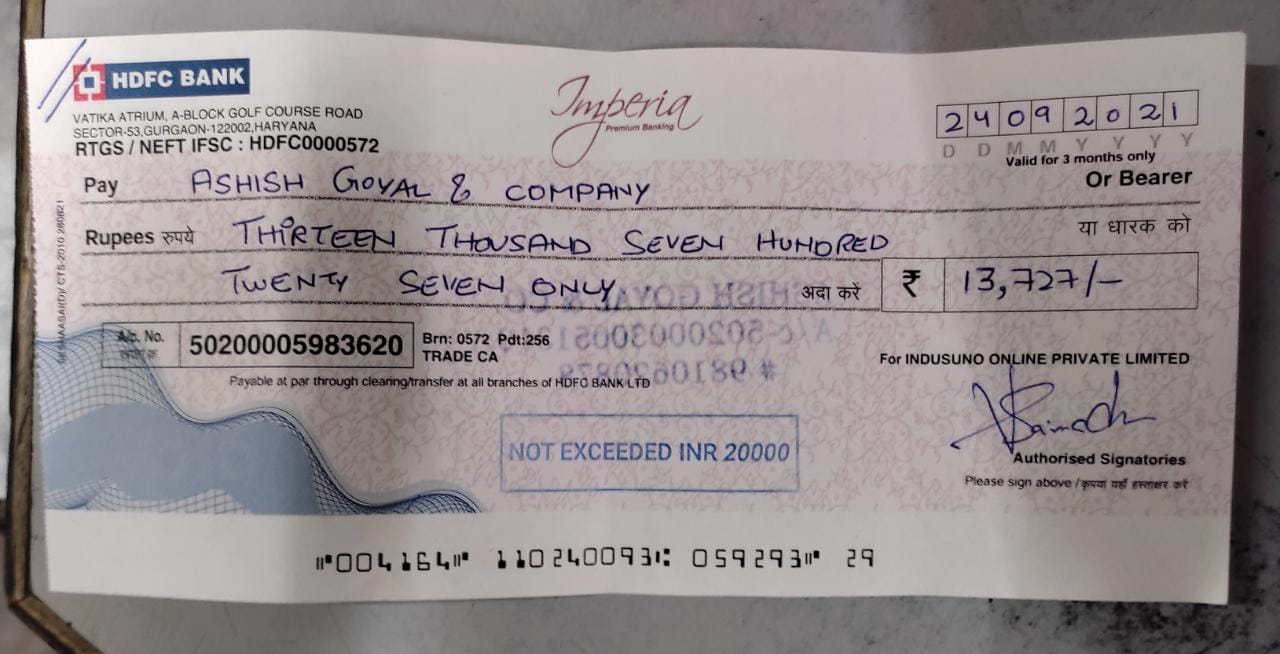 HDFC BANK
VATIKA ATRIUM, A-BLOCK GOLF COURSE ROAD
SECTOR-53,GURGAON-122002,HARYANA
RTGS / NEFT IFSC : HDFC0000572
Imperia
Premium Banking
24092021
D D M M Y Y Y Y
Valid for 3 months only
Pay ASHISH GOYAL & COMPANY Or Bearer
या धारक को
Rupees रुपये THIRTEEN THOUSAND SEVEN HUNDRED
TWENTY SEVEN ONLY अदा करें ₹ 13,727/-
A/c. No. 50200005983620
Brn: 0572 Pdt:256
TRADE CA
Payable at par through clearing/transfer at all branches of HDFC BANK LTD
For INDUSUNO ONLINE PRIVATE LIMITED
NOT EXCEEDED INR 20000
Authorised Signatories
Please sign above / कृपया यहाँ हस्ताक्षर करें
⑈004164⑈ 110240093⑆ 059293⑈ 29